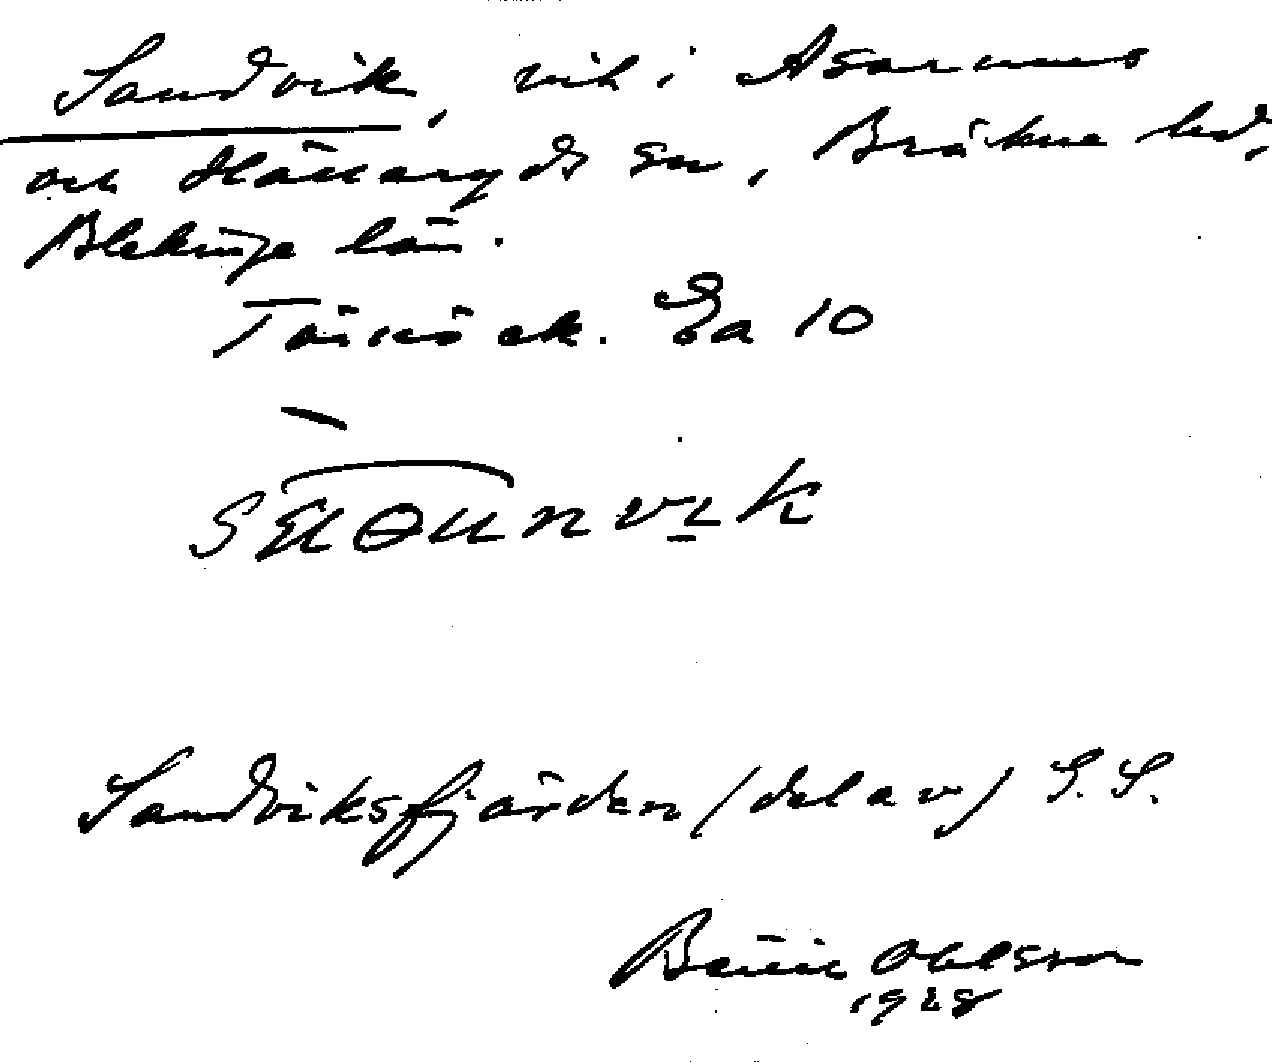 Sandvik, vik i Asarums
och Hällaryds sn, Bräkne hd,
Blekinge län.
Tärnö ek. Ea 10
Sandviksfjärden (del av) S.S.
Ohlsson
1928